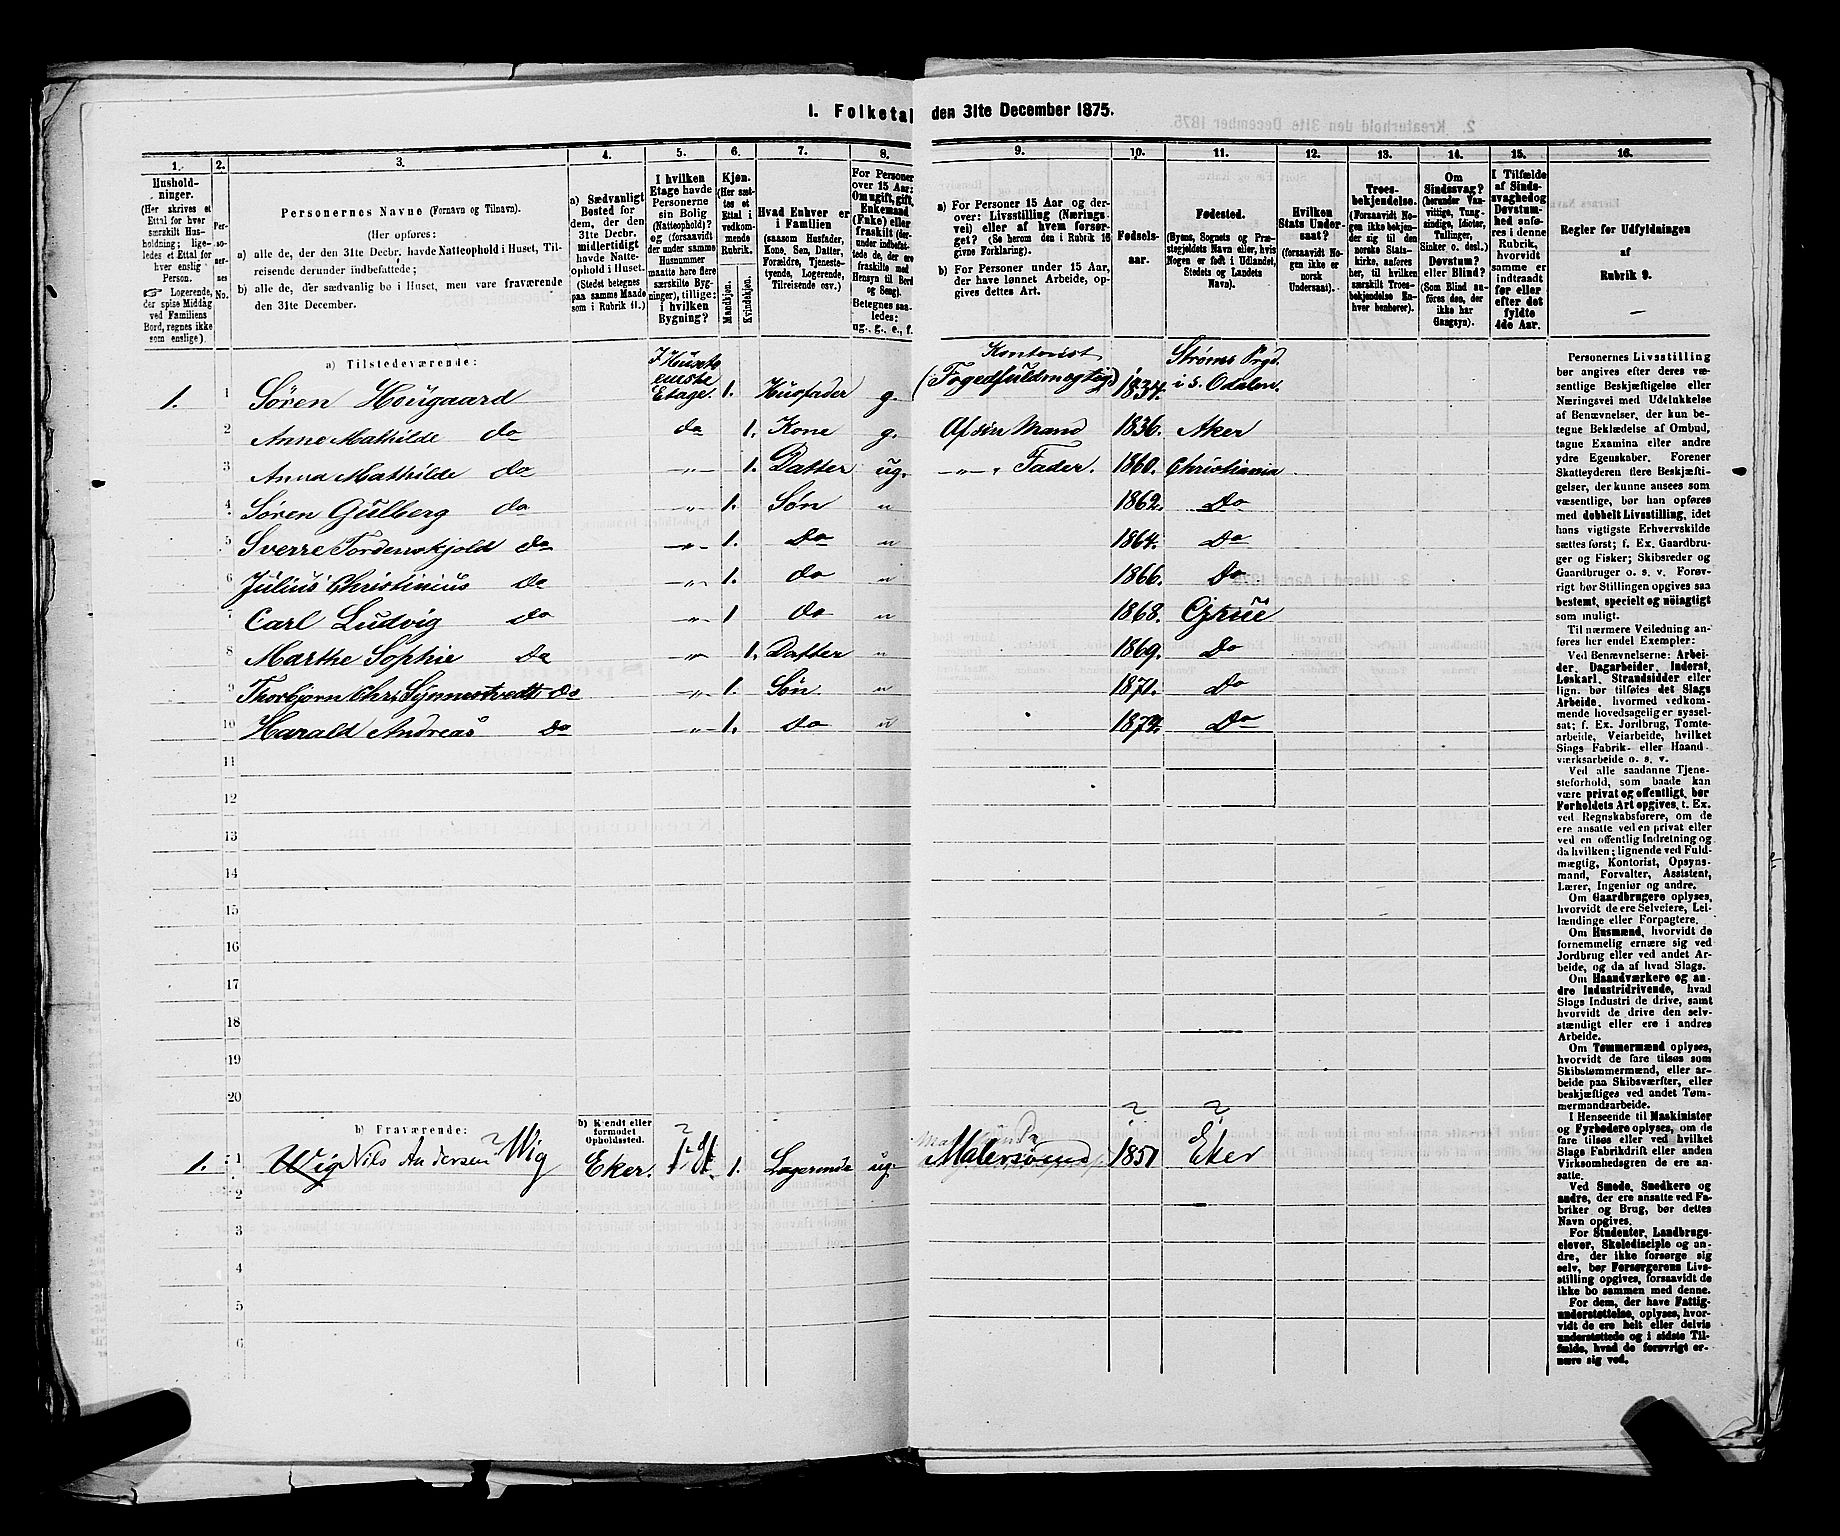 1. Folketal den 31te December 1875.
1. 2. 3. 4. 5. 6. 7. 8. 9. 10. 11. 12. 13. 14. 15. 16.
Hushold-
ninger.
(Her skrives et
Ettal for hver
særskilt Hus-
holdning; lige-
ledes et Ettal for
hver enslig
Person.
☞ Logerende,
der spise Middag
ved Familiens
Bord, regnes ikke
som enslige).
Per-
so-
ner-
nes
No.
Personernes Navne (Fornavn og Tilnavn).
(Her opføres:
a) alle de, der den 31te Decbr. havde Natteophold i Huset, Til-
reisende derunder indbefattede;
b) alle de, der sædvanlig bo i Huset, men vare fraværende
den 31te December.
a) Sædvanligt
Bosted for
dem, der den
31te Decbr.
midlertidigt
havde Natte-
ophold i Huset.
(Stedet betegnes
paa samme Maade
som i Rubrik 11.)
I hvilken
Etage havde
Personerne
sin Bolig
(Natteophold)?
og (forsaavidt
der under samme
Husnummer
maatte høre flere
særskilte Byg-
ninger), tillige:
i hvilken
Bygning?
Kjøn.
(Her sæt-
tes et
Ettal i
vedkom-
mende
Rubrik.
Mandkjøn.
Kvindekjøn.
Hvad Enhver er
i Familien
(saasom Husfader,
Kone, Søn, Datter,
Forældre, Tjeneste-
tyende, Logerende,
Tilreisende osv.)
For Personer
over 15 Aar:
Om ugift, gift,
Enkemand
(Enke) eller
fraskilt (der-
under indbefat-
tede de, der ere
fraskilte med
Hensyn til Bord
og Seng).
Betegnes saa-
ledes:
ug., g., e., f.
a) For Personer 15 Aar og der-
over: Livsstilling (Nærings-
vei) eller af hvem forsør-
get? (Se herom den i Rubrik 16
givne Forklaring).
b) For Personer under 15 Aar,
der have lønnet Arbeide, op-
gives dettes Art.
Fødsels-
aar.
Fødested.
(Byens, Sognets og Præ-
stegjeldets Navn eller, hvis
Nogen er født i Udlandet,
Stedets og Landets
Navn).
Hvilken
Stats Under-
saat?
(forsaavidt No-
gen ikke er
norsk
Undersaat).
Troes-
bekjendelse.
(Forsaavidt No-
gen ikke bekjen-
der sig til den
norske Stats-
kirke, anføres
her, til hvilken
særskilt Troes-
bekjendelse En-
hver henhører).
Om
Sindssvag?
(herunder Van-
vittige, Tung-
sindige, Idioter,
Tullinger,
Sinker o. desl.)
Døvstum?
eller Blind?
(Som Blind an-
føres den, der
ikke har
Gangsyn).
I Tilfælde
af Sinds-
svaghed og
Døvstum-
hed anfø-
res i denne
Rubrik,
hvorvidt
samme er
indtraadt
før eller
efter det
fyldte
4de Aar.
Regler for Udfyldningen
af
Rubrik 9.
a) Tilstedeværende:
1. 1 Søren Hougaard I Husets eneste Etage. 1. Husfader g. Kontorist (Fogedfuldmægtig) 1834. Strøms Prgd. i S. Odalen.
2 Anne Mathilde do do 1. Kone g. Af sin Mand 1836. Aker
3 Anna Mathilde do „ 1. Datter ug. „ Fader. 1860. Christiania
4 Søren Gulberg do „ 1. Søn „ 1862. Do
5 Sverre Tordenskjold do „ 1. Do „ 1864. Do
6 Julius Christinius do „ 1. do „ 1866. Do
7 Carl Ludvig do „ 1 do „ 1868. Grue
8 Marthe Sophie do „ 1. Datter „ 1869. Do
9 Thorbjørn Chr. Synnestvedt do „ 1. Søn „ 1871. Do
10 Harald Andreas do „ 1. do „ 1872. Do
11
12
13
14
15
16
17
18
19
20
b) Fraværende:
b) Kjendt eller
formodet
Opholdssted.
1. 1 Wig Nils Andersen Wig Eker. 1. Logerende ug. Malersvend 1851 Eker
2
3
4
5
6
Personernes Livsstilling
bør angives efter deres væ-
sentlige Beskjæftigelse eller
Næringsvei med Udelukkelse
af Benævnelser, der kun be-
tegne Beklædelse af Ombud,
tagne Examina eller andre
ydre Egenskaber. Forener
Skatteyderen flere Beskjæfti-
gelser, der kunne ansees som
væsentlige, bør han opføres
med dobbelt Livsstilling, idet
hans vigtigste Erhvervskilde
sættes først; f. Ex. Gaardbru-
ger og Fisker; Skibsreder og
Gaardbruger o. s. v. Forøv-
rigt bør Stillingen opgives saa
bestemt, specielt og nøiagtigt
som muligt.
Til nærmere Veiledning an-
føres her endel Exempler:
Ved Benævnelserne: Arbei-
der, Dagarbeider, Inderst,
Løskarl, Strandsidder eller
lign. bør tilføies det Slags
Arbeide, hvormed vedkom-
mende hovedsagelig er syssel-
sat; f. Ex. Jordbrug, Tømte-
arbeide, Veiarbeide, hvilket
Slags Fabrik- eller Haand-
værksarbeide o. s. v.
Ved alle saadanne Tjene-
steforhold, som baade kan
være privat og offentligt, bør
Forholdets Art opgives, t. Ex.
ved Regnskabsførere, om de
ere ansatte ved en privat eller
ved en offentlig Indretning og
da hvilken; lignende ved Fuld-
mægtig, Kontorist, Opsyns-
mand, Forvalter, Assistent,
Lærer, Ingeniør og andre.
Om Gaardbrugere oplyses,
hvorvidt de ere Selveiere, Lei-
lændinge eller Forpagtere.
Om Husmænd, hvorvidt de
fornemmelig ernære sig ved
Jordbrug eller ved andet Ar-
beide, og da af hvad Slags.
Om Haandværkere og an-
dre Industridrivende, hvad
Slags Industri de drive, samt
hvorvidt de drive den selv-
stændigt eller ere i andres
Arbeide.
Om Tømmermænd oplyses,
hvorvidt de fare tilsøs som
Skibstømmermænd, eller ar-
beide paa Skibsværfter, eller
beskjæftiges ved andet Tøm-
mermandsarbeide.
I Henseende til Maskinister
og Fyrbødere oplyses, om de
fare tilsøs eller ved hvilket
Slags Fabrikdrift eller anden
Virksomhed de ere an-
satte.
Ved Smede, Snedkere og
andre, der ere ansatte ved Fa-
briker og Brug, bør dettes
Navn opgives.
For Studenter, Landbrugs-
elever, Skoledisciple og an-
dre, der ikke forsørge sig
selv, bør Forsørgerens Livs-
stilling opgives, forsaavidt de
ikke bo sammen med denne.
For dem, der have Fattig-
understøttelse, oplyses, hvor-
vidt de ere helt eller delvis
understøttede og i sidste Til-
fælde, hvad de forøvrigt er-
nære sig ved.